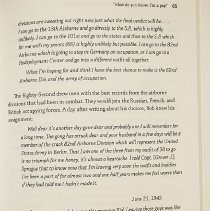 "What do you know, I'm a pvt" 65
divisions are sweating out right now just what the final order will be. . . .
I can go to the 13th Airborne and go directly to the S.P. which is highly
unlikely. I can go to the 101 and go to the states and then to the S.P. which
for me with my points (66) is highly unlikely but possible. I can go to the 82nd
Airborne which is going to stay in Germany on occupation, or I can go to a
Redeployment Center and go into a different outfit all together.
What I'm hoping for and think I have the best chance to make is the 82nd
Airborne Div. and the army of occupation.
The Eighty-Second drew men with the best records from the airborne
divisions that had been in combat. They would join the Russian, French, and
British occupying forces. A day after writing about his choices, Bob knew his
assignment:
Well dear it's another day gone dear and probably one I will remember for
a long time. The gang has struck dear and your husband in a few days will be a
member of the crack 82nd Airborne Division which will represent the United
States Army in Berlin. That I am one of the three men from my outfit of 38 to go
is no triumph for me honey, it's almost a heartache. I told Capt. (Grover J.)
Sprague that to know now that I'm leaving very soon the outfit and comrades
I've been a part of for almost two and one half years makes me feel worse than
if they had told me I hadn't made it.
June 21, 1945